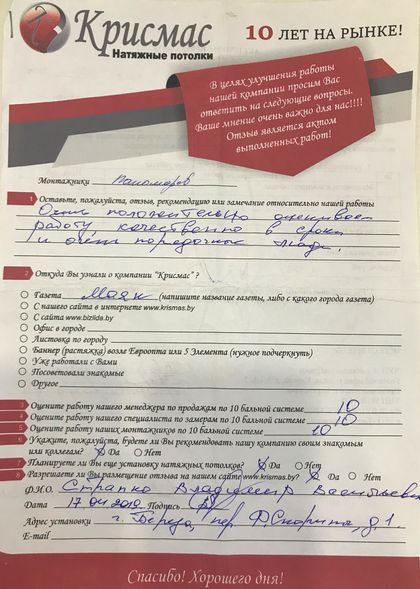 Крисмас
Натяжные потолки
10 ЛЕТ НА РЫНКЕ!
В целях улучшения работы
нашей компании просим Вас
ответить на следующие вопросы.
Ваше мнение очень важно для нас!!!!
Отзыв является актом
выполненных работ!
Монтажники Пономарев
1 Оставьте, пожалуйста, отзыв, рекомендацию или замечание относительно нашей работы
Очень положительно оцениваем
работу, качественно в сроки
и очень порядочные люди.
2 Откуда Вы узнали о компании "Крисмас" ?
Газета Маяк (напишите название газеты, либо с какого города газета)
С нашего сайта в интернете www.krismas.by
С сайта www.bizilda.by
Офис в городе
Листовка по городу
Баннер (растяжка) возле Евроопта или 5 Элемента (нужное подчеркнуть)
Уже работали с Вами
Посоветовали знакомые
Другое
3 Оцените работу нашего менеджера по продажам по 10 бальной системе 10
4 Оцените работу нашего специалиста по замерам по 10 бальной системе 10
5 Оцените работу наших монтажников по 10 бальной системе 10
6 Укажите, пожалуйста, будете ли Вы рекомендовать нашу компанию своим знакомым
или коллегам? Да Нет
7 Планируете ли Вы еще установку натяжных потолков? Да Нет
8 Разрешаете ли Вы размещение отзыва на нашем сайте www.krismas.by? Да Нет
Ф.И.О. Страпко Владимир Васильевич
Дата 17.04.2018 Подпись
Адрес установки г. Береза, пер. Ф.Скорины, д.1.
E-mail
Спасибо! Хорошего дня!